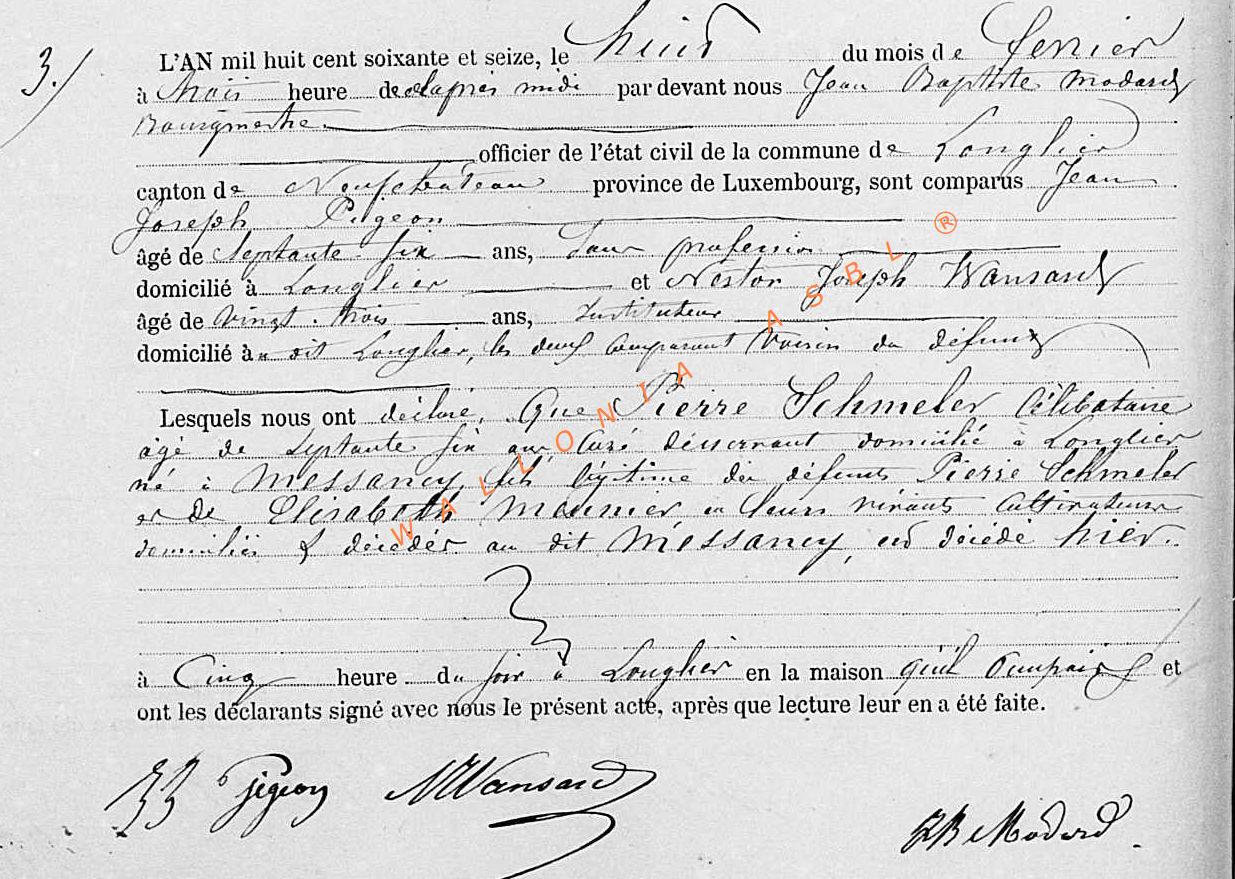 3.
L'AN mil huit cent soixante et seize, le huit du mois de fevrier
à trois heure de l'après midi par devant nous Jean Baptiste Modard
Bourgmestre
officier de l'état civil de la commune de Longlier
canton de Neufchateau province de Luxembourg, sont comparus Jean
Joseph Pigeon
âgé de Septante six ans, Sans profession
domicilié à Longlier et Nestor Joseph Wansard
âgé de vingt trois ans, Instituteur
domicilié à dit Longlier, les deux comparant Voisin du défunt
Lesquels nous ont déclaré, Que Pierre Schmeler Célibataire
âgé de Septante six ans Curé desservant domicilié à Longlier
né à Messancy, fils légitime des défunts Pierre Schmeler
et de Elisabeth Meunier en leurs vivants Cultivateurs
domiciliés & décédés au dit Messancy, est décédé hier.
à Cinq heure du soir à Longlier en la maison qu'il Occupait et
ont les déclarants signé avec nous le présent acte, après que lecture leur en a été faite.
JJ Pigeon NWansard
JB Modard
WALLONIA ASBL ®